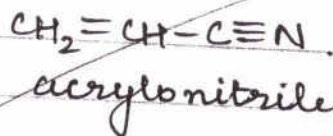 CH₂=CH-C≡N.
acrylonitrile